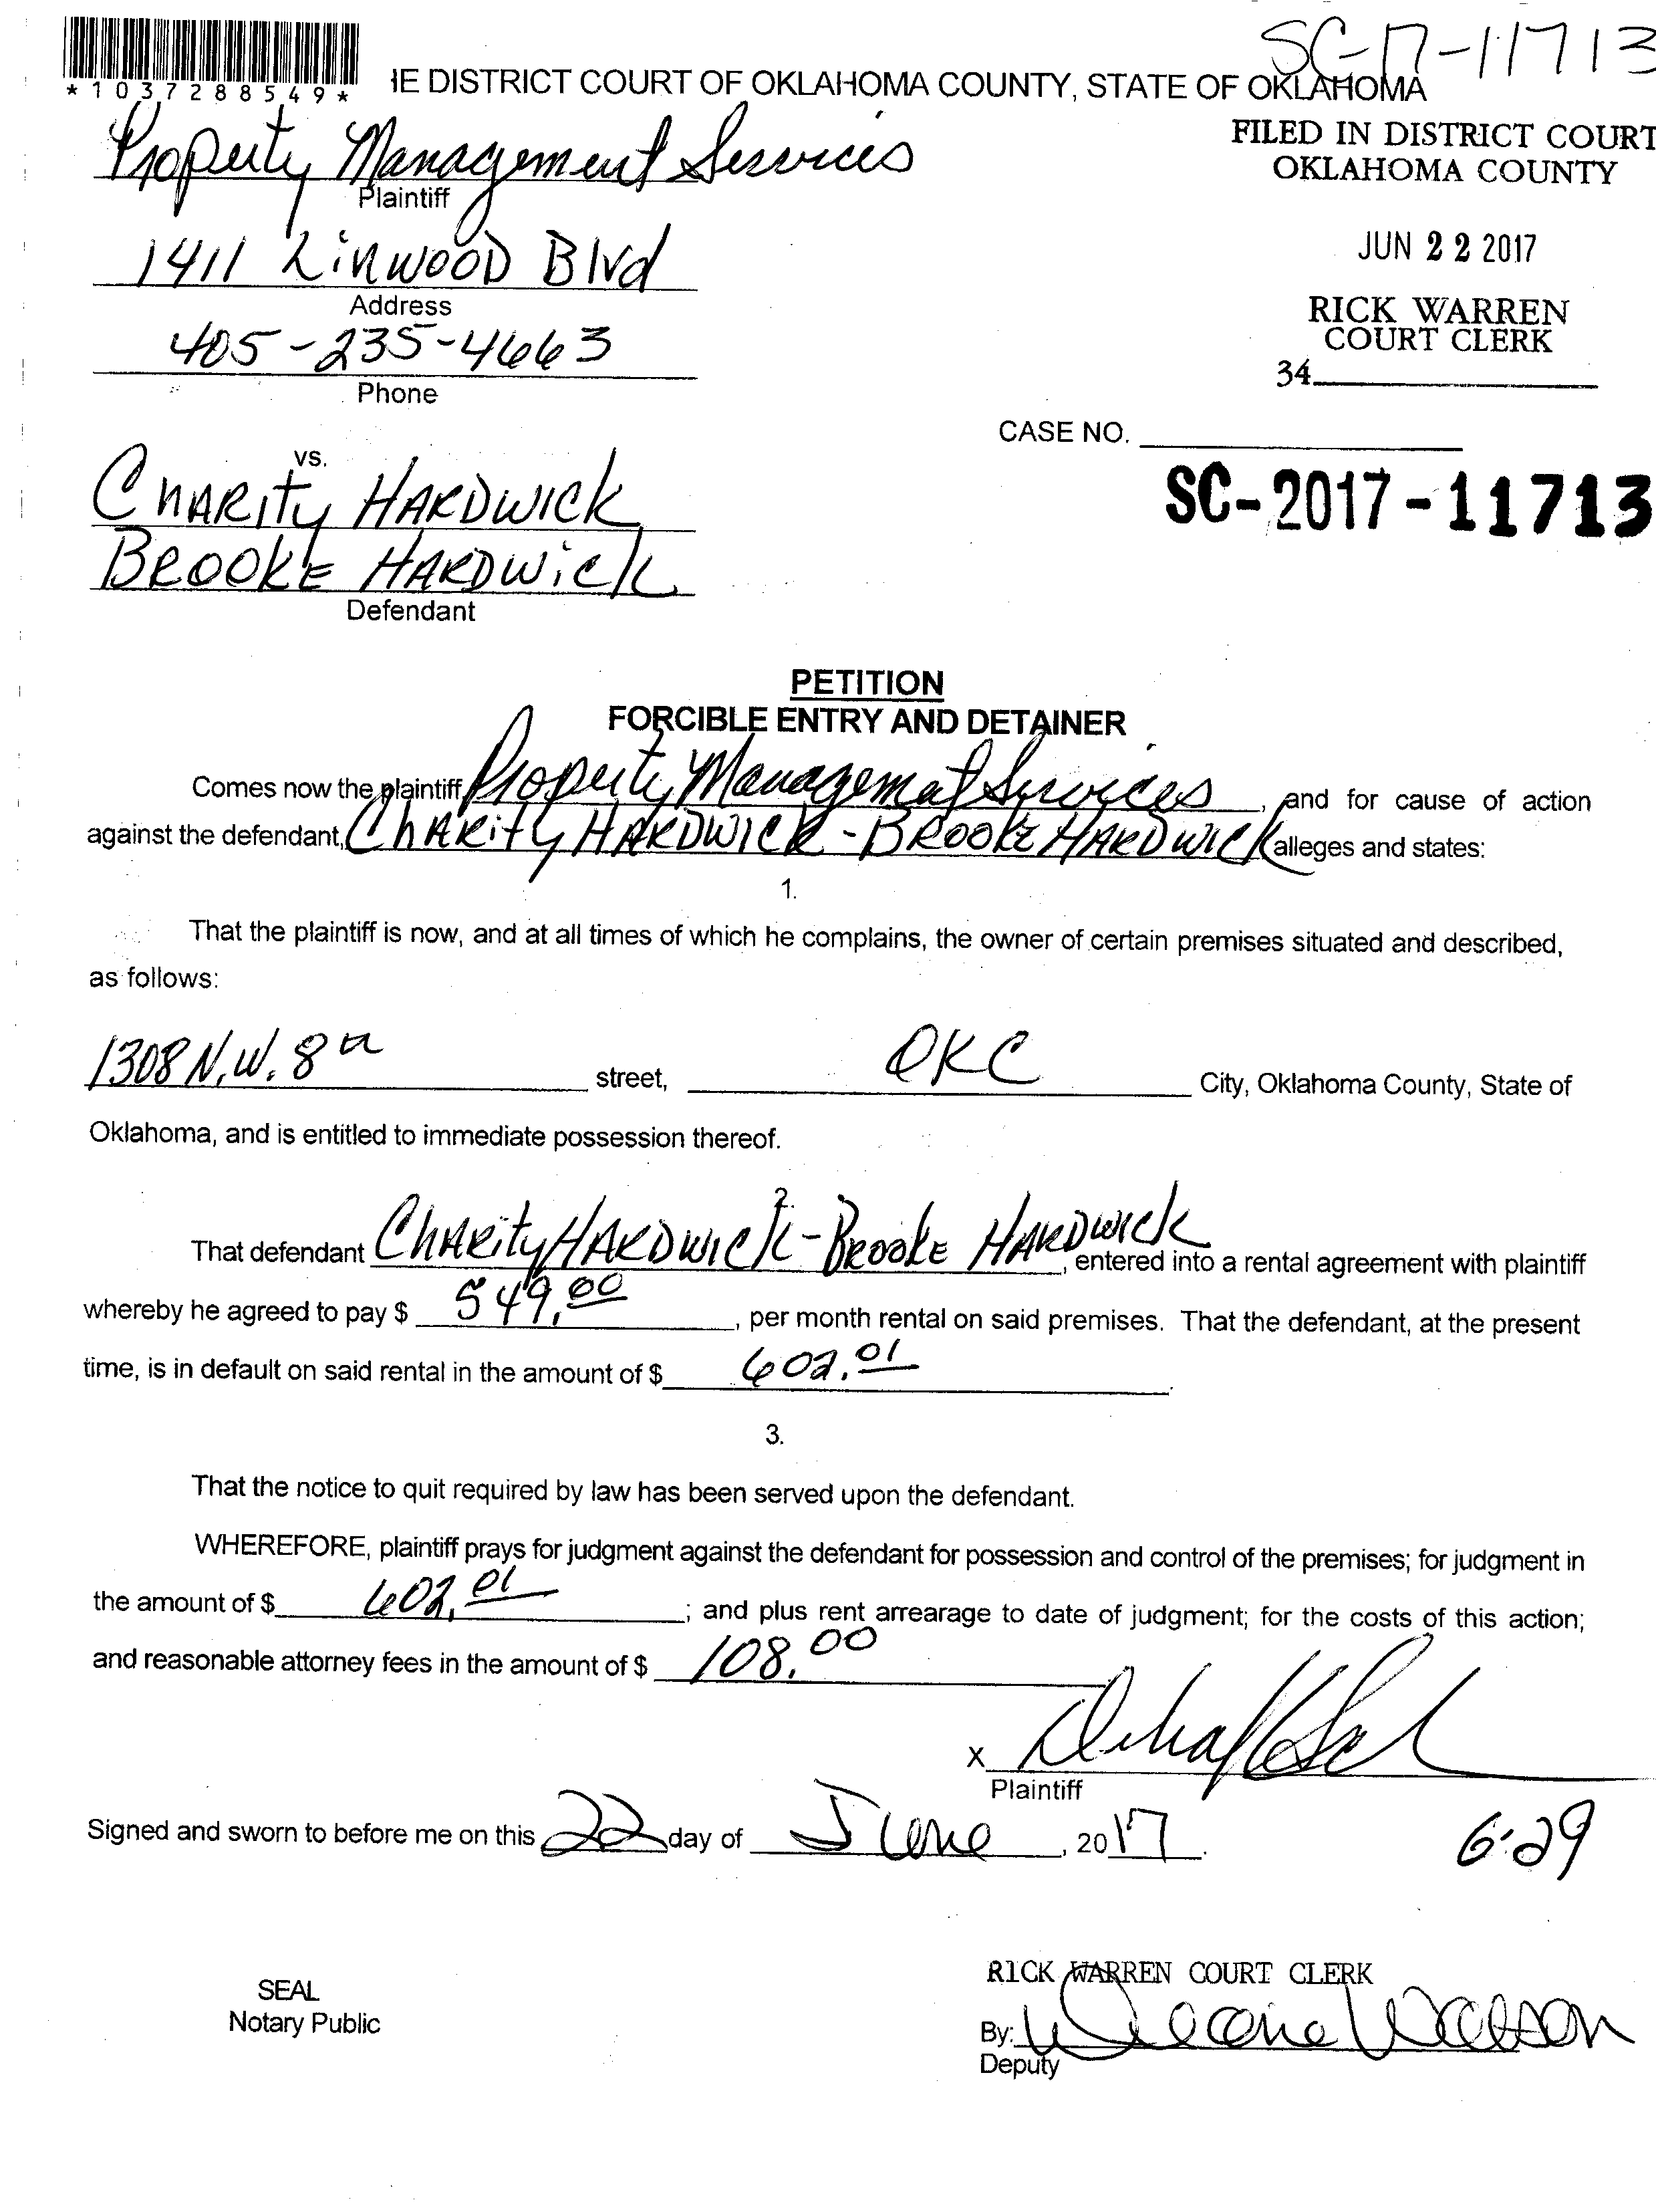 SC-17-11713
*1037288549*
IE DISTRICT COURT OF OKLAHOMA COUNTY, STATE OF OKLAHOMA
FILED IN DISTRICT COURT
OKLAHOMA COUNTY
JUN 22 2017
RICK WARREN
COURT CLERK
34
Property Management Services
Plaintiff
1411 Linwood Blvd
Address
405-235-4663
Phone
CASE NO.
SC-2017-11713
vs.
Charity Hardwick
Brooke Hardwick
Defendant
PETITION
FORCIBLE ENTRY AND DETAINER
Comes now the plaintiff, Property Management Services, and for cause of action
against the defendant, Charity Hardwick - Brooke Hardwick alleges and states:
1.
That the plaintiff is now, and at all times of which he complains, the owner of certain premises situated and described,
as follows:
1308 N.W. 8th street, OKC City, Oklahoma County, State of
Oklahoma, and is entitled to immediate possession thereof.
2.
That defendant Charity Hardwick - Brooke Hardwick, entered into a rental agreement with plaintiff
whereby he agreed to pay $ 549.00, per month rental on said premises. That the defendant, at the present
time, is in default on said rental in the amount of $ 602.01.
3.
That the notice to quit required by law has been served upon the defendant.
WHEREFORE, plaintiff prays for judgment against the defendant for possession and control of the premises; for judgment in
the amount of $ 602.01; and plus rent arrearage to date of judgment; for the costs of this action;
and reasonable attorney fees in the amount of $ 108.00
X
Plaintiff
Signed and sworn to before me on this 22 day of June, 2017.
6-29
SEAL
Notary Public
RICK WARREN COURT CLERK
By: Watson
Deputy